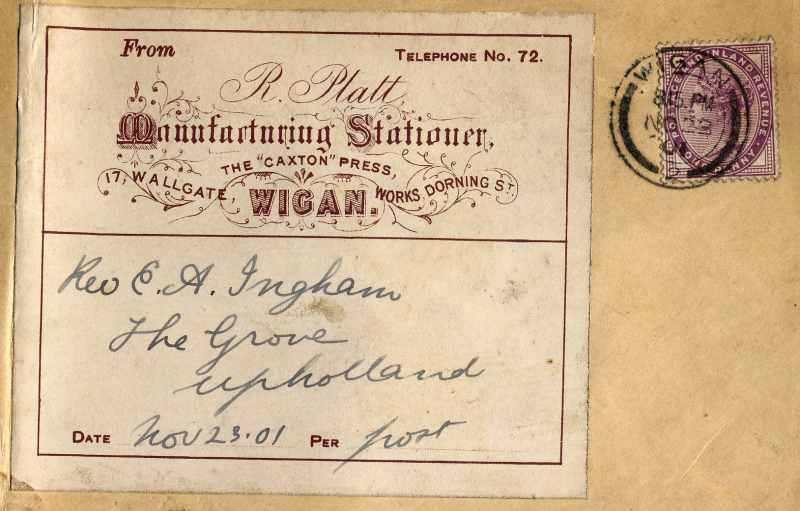 From
TELEPHONE No. 72.
R. Platt,
Manufacturing Stationer,
THE "CAXTON" PRESS,
17, WALLGATE, WORKS, DORNING ST
WIGAN.
Rev E. A. Ingham
The Grove
upholland
DATE Nov 23.01 PER post
WIGAN
INLAND REVENUE